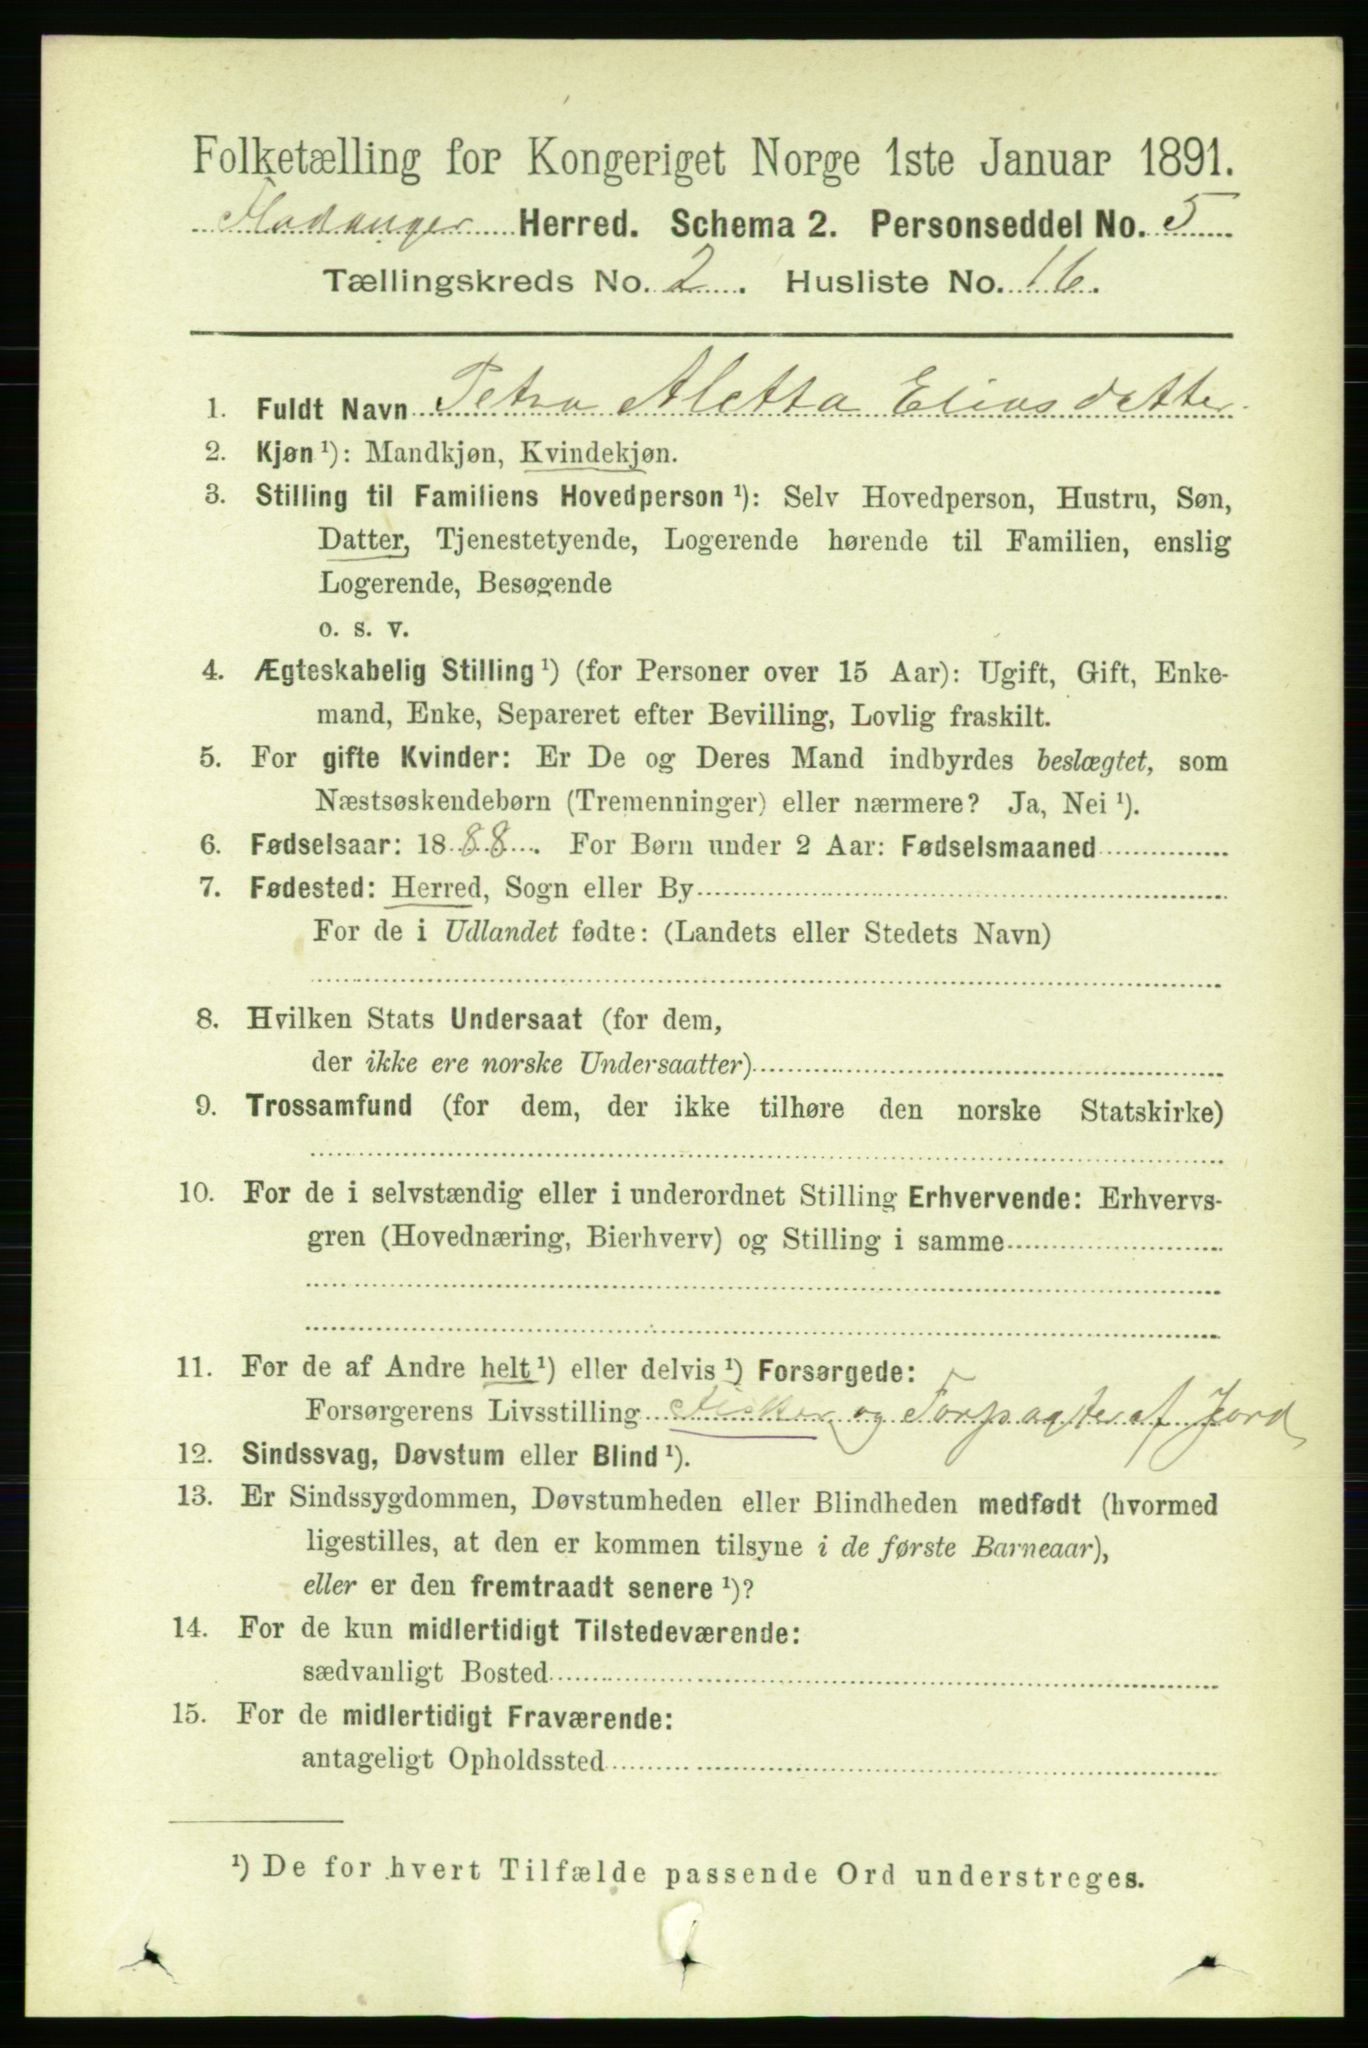 Folketælling for Kongeriget Norge 1ste Januar 1891.
Fladanger Herred. Schema 2. Personseddel No. 5
Tællingskreds No. 2. Husliste No. 16.
1. Fuldt Navn Petra Aletta Eliasdatter
2. Kjøn ¹): Mandkjøn, Kvindekjøn.
3. Stilling til Familiens Hovedperson ¹): Selv Hovedperson, Hustru, Søn,
Datter, Tjenestetyende, Logerende hørende til Familien, enslig
Logerende, Besøgende
o. s. v.
4. Ægteskabelig Stilling ¹) (for Personer over 15 Aar): Ugift, Gift, Enke-
mand, Enke, Separeret efter Bevilling, Lovlig fraskilt.
5. For gifte Kvinder: Er De og Deres Mand indbyrdes beslægtet, som
Næstsøskendebørn (Tremenninger) eller nærmere? Ja, Nei ¹).
6. Fødselsaar: 1888. For Børn under 2 Aar: Fødselsmaaned
7. Fødested: Herred, Sogn eller By
For de i Udlandet fødte: (Landets eller Stedets Navn)
8. Hvilken Stats Undersaat (for dem,
der ikke ere norske Undersaatter)
9. Trossamfund (for dem, der ikke tilhøre den norske Statskirke)
10. For de i selvstændig eller i underordnet Stilling Erhvervende: Erhvervs-
gren (Hovednæring, Bierhverv) og Stilling i samme
11. For de af Andre helt ¹) eller delvis ¹) Forsørgede:
Forsørgerens Livsstilling Fisker og Forpagter af Jord
12. Sindssvag, Døvstum eller Blind ¹).
13. Er Sindssygdommen, Døvstumheden eller Blindheden medfødt (hvormed
ligestilles, at den er kommen tilsyne i de første Barneaar),
eller er den fremtraadt senere ¹)?
14. For de kun midlertidigt Tilstedeværende:
sædvanligt Bosted
15. For de midlertidigt Fraværende:
antageligt Opholdssted
¹) De for hvert Tilfælde passende Ord understreges.